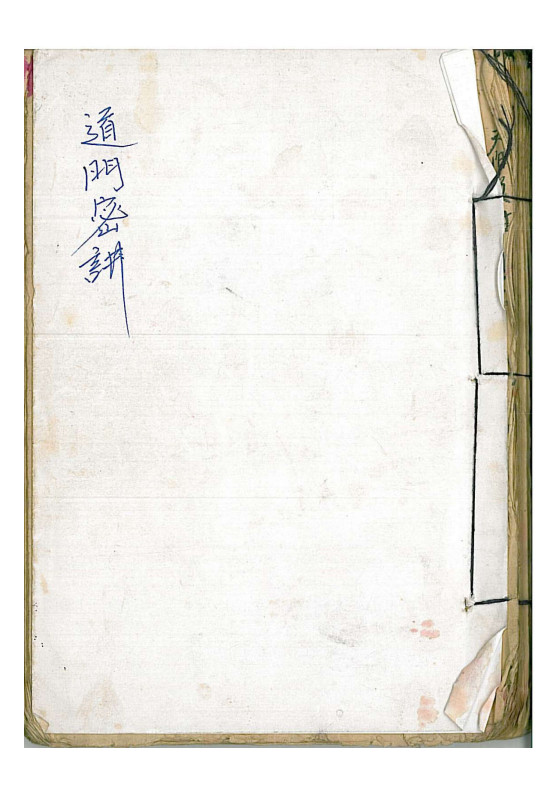 道門密講